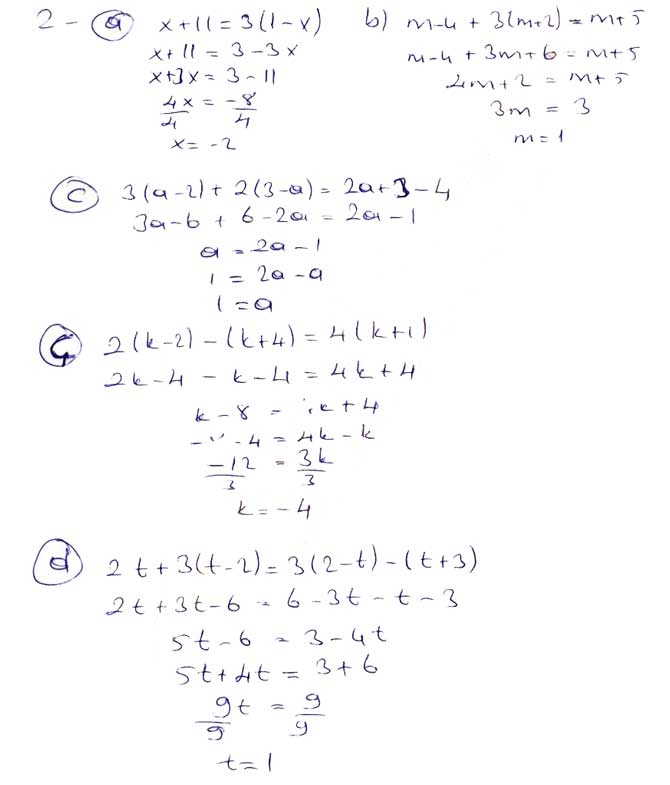 2 - a) x+11 = 3(1-x)
x+11 = 3-3x
x+3x = 3-11
4x/4 = -8/4
x = -2
b) m-4 + 3(m+2) = m+5
m-4 + 3m+6 = m+5
4m+2 = m+5
3m = 3
m=1
c) 3(a-2) + 2(3-a) = 2a+3-4
3a-6 + 6-2a = 2a-1
a = 2a-1
1 = 2a-a
1 = a
ç) 2(k-2) - (k+4) = 4(k+1)
2k-4 - k-4 = 4k+4
k-8 = k+4
-4 = 4k-k
-12/3 = 3k/3
k = -4
d) 2t+3(t-2) = 3(2-t) - (t+3)
2t+3t-6 = 6-3t-t-3
5t-6 = 3-4t
5t+4t = 3+6
9t/9 = 9/9
t=1